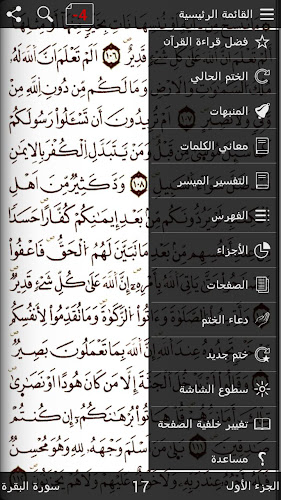 القائمة الرئيسية
4
فضل قراءة القرآن
الختم الحالي
المنبهات
معاني الكلمات
التفسير الميسر
الفهرس
الأجزاء
الصفحات
دعاء الختم
ختم جديد
سطوع الشاشة
تغيير خلفية الصفحة
مساعدة
قَدِيرٌ ١٠٦ أَلَمْ تَعْلَمْ أَنَّ
وَمَا لَكُم مِّن دُونِ ٱللَّهِ
أَن تَسْـَٔلُوا۟ رَسُولَكُمْ
وَمَن يَتَبَدَّلِ ٱلْكُفْرَ بِٱلْإِيمَـٰنِ
١٠٨ وَدَّ كَثِيرٌ مِّنْ أَهْلِ
مِّنۢ بَعْدِ إِيمَـٰنِكُمْ كُفَّارًا حَسَدًا
مِّنۢ بَعْدِ مَا تَبَيَّنَ لَهُمُ ٱلْحَقُّ فَٱعْفُوا۟
إِنَّ ٱللَّهَ عَلَىٰ كُلِّ شَىْءٍ قَدِيرٌ
ٱلزَّكَوٰةَ وَمَا تُقَدِّمُوا۟ لِأَنفُسِكُم
عِندَ ٱللَّهِ إِنَّ ٱللَّهَ بِمَا تَعْمَلُونَ بَصِيرٌ
إِلَّا مَن كَانَ هُودًا أَوْ نَصَـٰرَىٰ
بُرْهَـٰنَكُمْ إِن كُنتُمْ
أَسْلَمَ وَجْهَهُۥ لِلَّهِ وَهُوَ مُحْسِنٌ
الجزء الأول
17
سورة البقرة